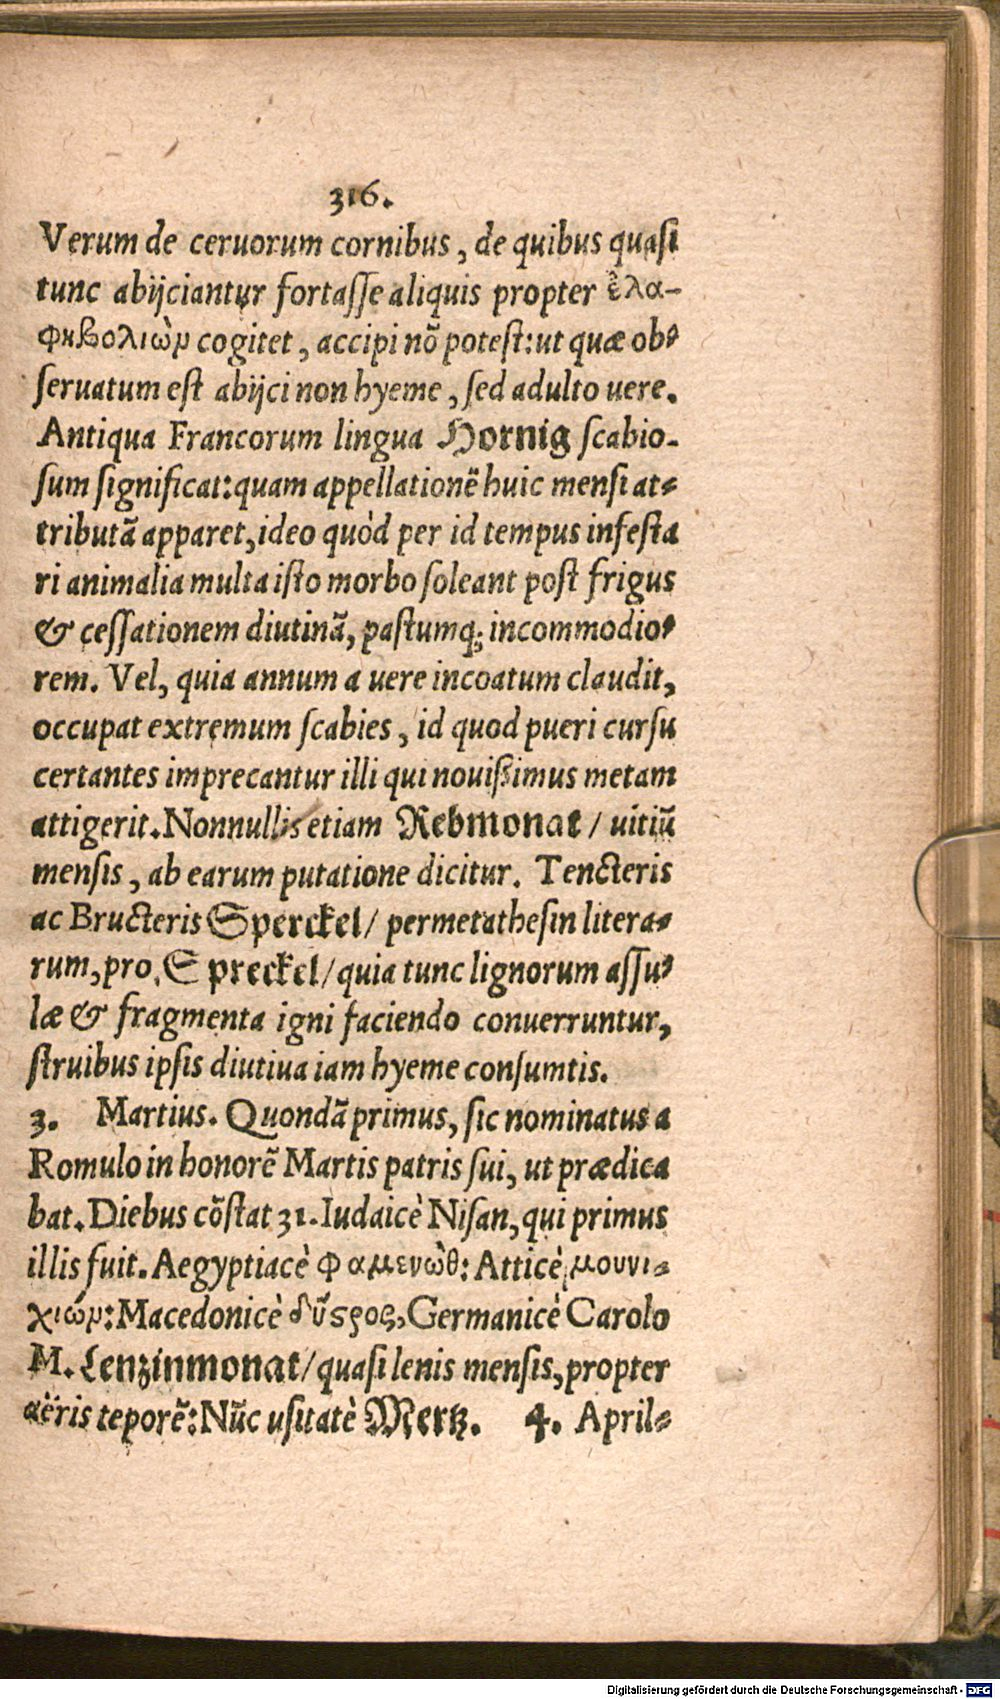 316.
Verum de ceruorum cornibus, de quibus quasi
tunc abijciantur fortasse aliquis propter ἐλα-
φηβολιὼν cogitet, accipi nõ potest: ut quæ ob-
seruatum est abijci non hyeme, sed adulto uere.
Antiqua Francorum lingua Hornig scabio-
sum significat: quam appellationẽ huic mensi at-
tributã apparet, ideo quòd per id tempus infesta
ri animalia multa isto morbo soleant post frigus
& cessationem diutinã, pastumq; incommodio-
rem. Vel, quia annum a uere incoatum claudit,
occupat extremum scabies, id quod pueri cursu
certantes imprecantur illi qui nouissimus metam
attigerit. Nonnullis etiam Rebmonat / uitiũ
mensis, ab earum putatione dicitur. Tencteris
ac Bructeris Sperckel / per metathesin litera-
rum, pro, Spreckel / quia tunc lignorum assu-
læ & fragmenta igni faciendo conuerruntur,
struibus ipsis diutiua iam hyeme consumtis.
3. Martius. Quondã primus, sic nominatus a
Romulo in honorẽ Martis patris sui, ut prædica
bat. Diebus cõstat 31. Iudaicè Nisan, qui primus
illis fuit. Aegyptiacè φαμενὼθ: Atticè μουνι-
χιών: Macedonicè δύστρος, Germanicè Carolo
M. Lenzinmonat / quasi lenis mensis, propter
aëris teporẽ: Nũc usitatè Mertz. 4. April-
Digitalisierung gefördert durch die Deutsche Forschungsgemeinschaft - DFG